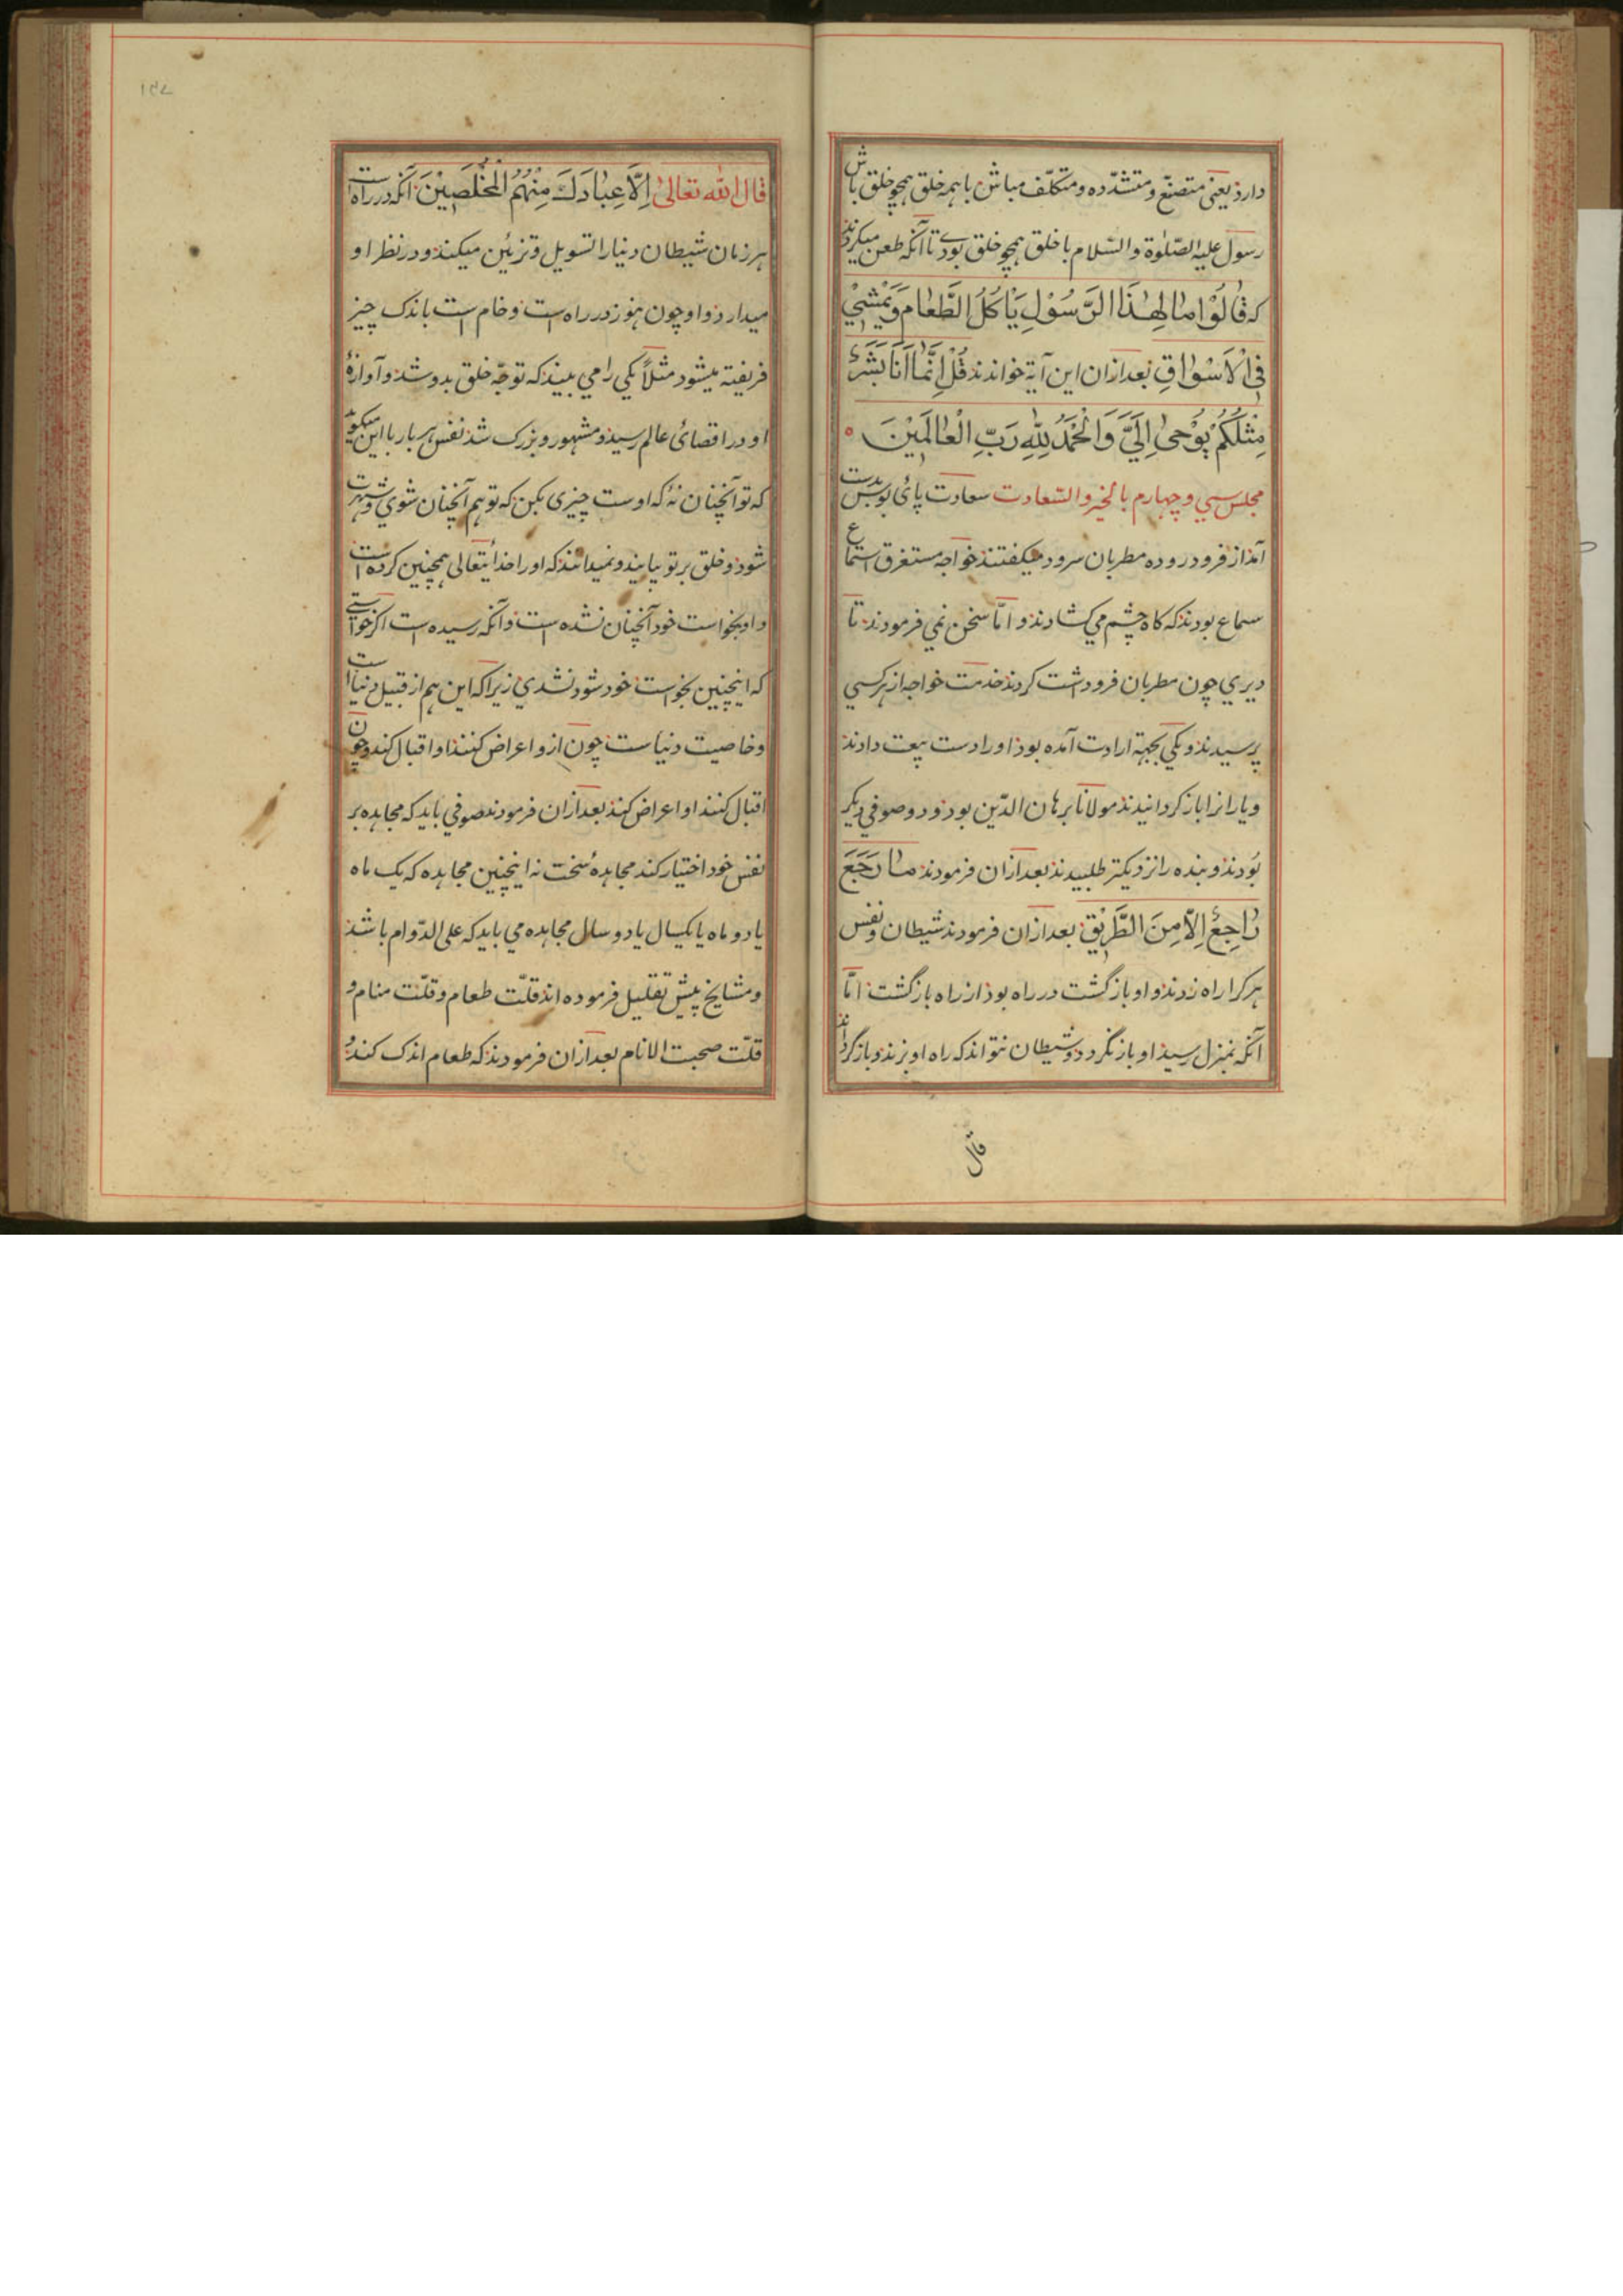 دارد یعنی متصنّع و متشدّده و متکلّف مباش با همه خلق همچو خلق باش
رسول علیه الصّلوٰة والسّلام با خلق همچو خلق بودے تا آنکه طعن میکردند
که قَالُوْا مَا لِهٰذَا الرَّسُوْلِ یَاْکُلُ الطَّعَامَ وَیَمْشِیْ
فِی الْاَسْوَاقِ بعد ازان این آیة خواندند قُلْ اِنَّمَا اَنَا بَشَرٌ
مِثْلُکُمْ یُوْحٰی اِلَیَّ وَالْحَمْدُ لِلّٰهِ رَبِّ الْعَالَمِیْنَ
مجلس سي و چهارم بالخیر والسّعادت سعادت پائ بوس بدست
آمد از فرود روده مطربان سرود میکفتند خواجه مستغرق استماع
سماع بودند که کاه چشم می کشادند و امّا سخن نمي فرمودند تا
دیري چون مطربان فروداشت کردند خدمت خواجه از هر کسي
پرسیدند و یکي بجهة ارادت آمده بود او را دست بیعت دادند
و یارانرا باز کردانیدند مولانا برهان الدّین بود و دو صوفي دیکر
بُودند و بنده را نزدیکتر طلبیدند بعد ازان فرمودند مَا رَجَعَ
رَاجِعٌ اِلَّا مِنَ الطَّرِیْقِ بعد ازان فرمودند شیطان و نفس
هر کرا راه زدند و او باز گشت در راه بود از راه باز گشت امّا
آنکه بمنزل رسید او باز نگردد و شیطان نتواند که راه او بزند و باز گرداند
قال
۱۵۷
قال اللّٰه تعالیٰ اِلَّا عِبَادَكَ مِنْهُمُ الْمُخْلَصِیْنَ آنکه در راه است
هر زمان شیطان دنیا را تسویل و تزئین میکند و در نظر او
میدارد و او چون هنوز در راه است و خام است باندک چیز
فریفته میشود مثلاً یکي را مي بیند که توجّه خلق بدو شد و آوازۀ
او در اقصائ عالم رسید و مشهور و بزرک شد نفس هر بار با این میکوید
که تو آنچنان نۀ که اوست چیزی بکن که تو هم آنچنان شوي و شهرت
شود و خلق بر تو بیایند و نمیدانند که او را خدایتعالی همچنین کرده است
و او بخواست خود آنچنان نشده است و آنکه رسیده است اکر خواستے
که اینچنین بخواست خود شود نشدي زیرا که این هم از قبیل دنیا است
و خاصیت دنیاست چون ازو اعراض کنند او اقبال کند و چون
اقبال کنند او اعراض کند بعد ازان فرمودند صوفي باید که مجاهده بر
نفس خود اختیار کند مجاهدۀ سخت نه اینچنین مجاهده که یک ماه
یا دو ماه یا یکسال یا دو سال مجاهده مي باید که علی الدّوام باشد
و مشایخ پیش تقلیل فرموده اند قلّت طعام و قلّت منام و
قلّت صحبت الانام بعد ازان فرمودند که طعام اندک کند و